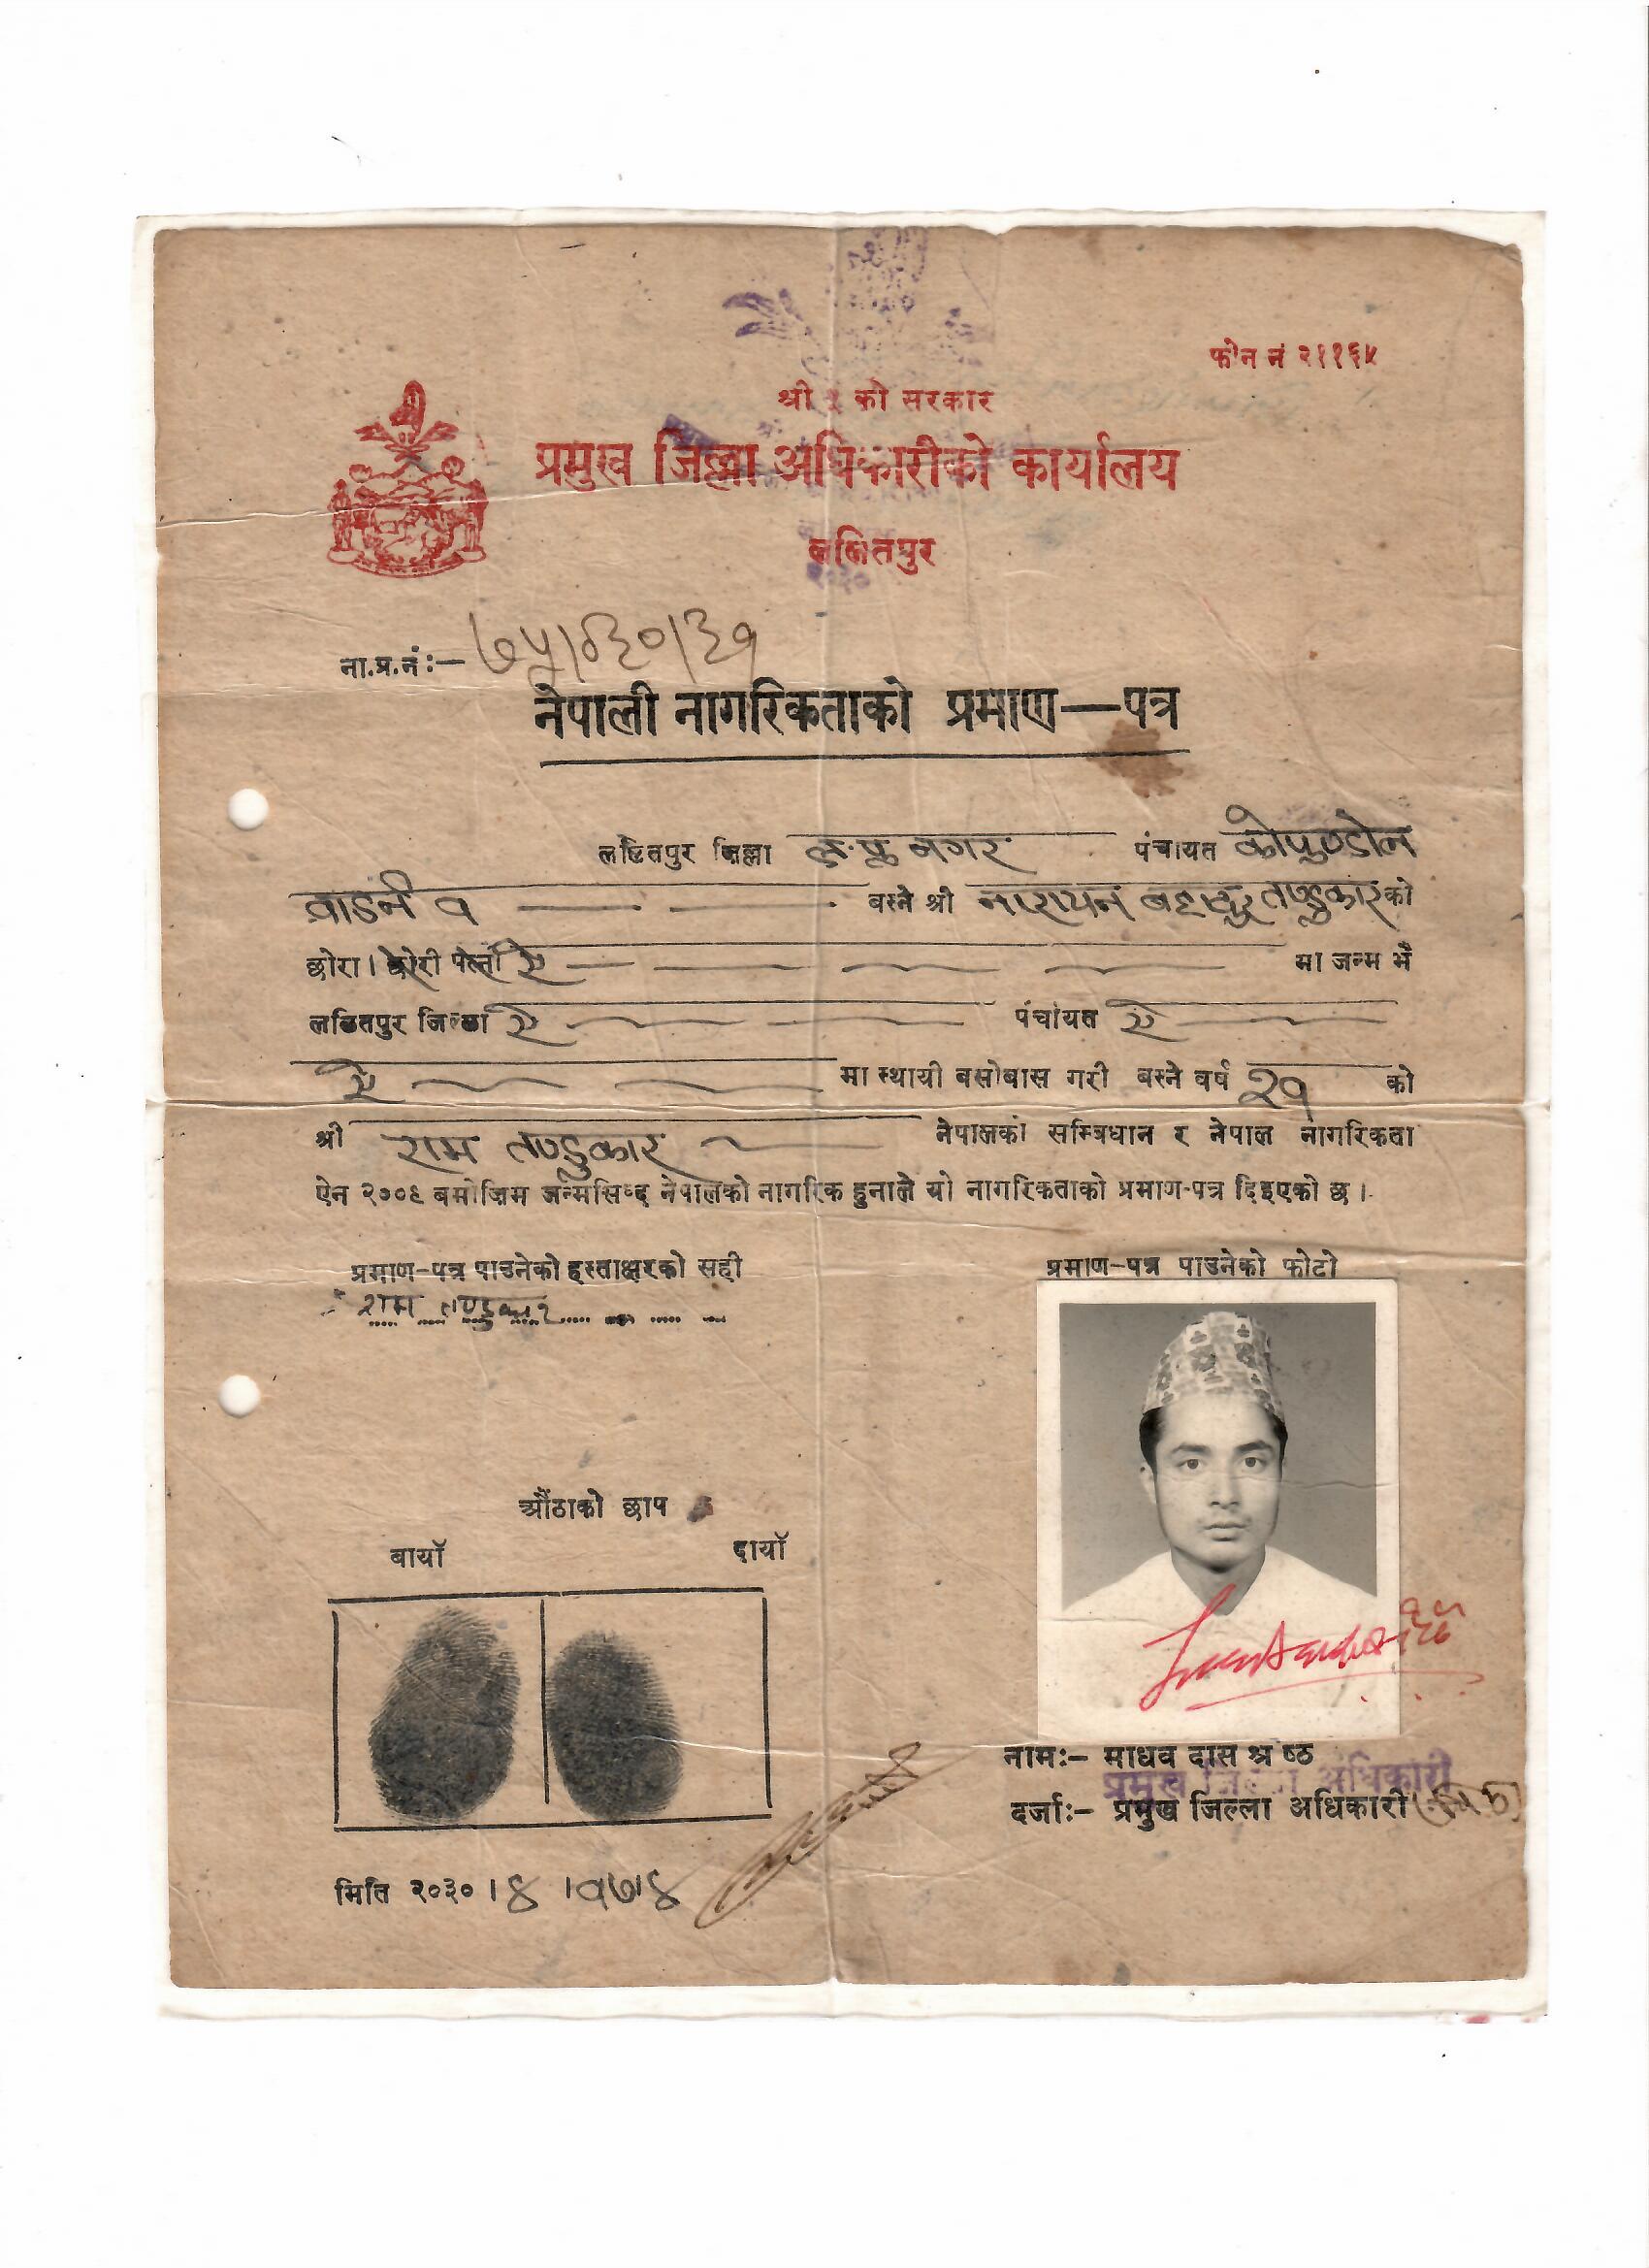 फोन नं २११६५
श्री ५ को सरकार
प्रमुख जिल्ला अधिकारीको कार्यालय
ललितपुर
२०३०
ना.प्र.नं:—
नेपाली नागरिकताको प्रमाण—पत्र
ललितपुर जिल्ला ल.पु. नगर पंचायत कोपुण्डोल
वाडनं १ बस्ने श्री नारायन बहादुर तण्डुकार को
छोरा। छोरी पत्नी ऐ मा जन्म भै
ललितपुर जिल्ला ऐ पंचायत ऐ
ऐ मा स्थायी बसोबास गरी बस्ने वर्ष २१ को
श्री राम तण्डुकार नेपालको सम्विधान र नेपाल नागरिकता
ऐन २००९ बमोजिम जन्मसिद्द नेपालको नागरिक हुनाले यो नागरिकताको प्रमाण-पत्र दिइएको छ।
प्रमाण-पत्र पाउनेको हस्ताक्षरको सही
राम तण्डुकार
प्रमाण-पत्र पाउनेको फोटो
औंठाको छाप
बायाँ दायाँ
नामः- माधव दास श्रेष्ठ
प्रमुख जिल्ला अधिकारी
दर्जाः- प्रमुख जिल्ला अधिकारी
मिति २०३०।४।१७।४